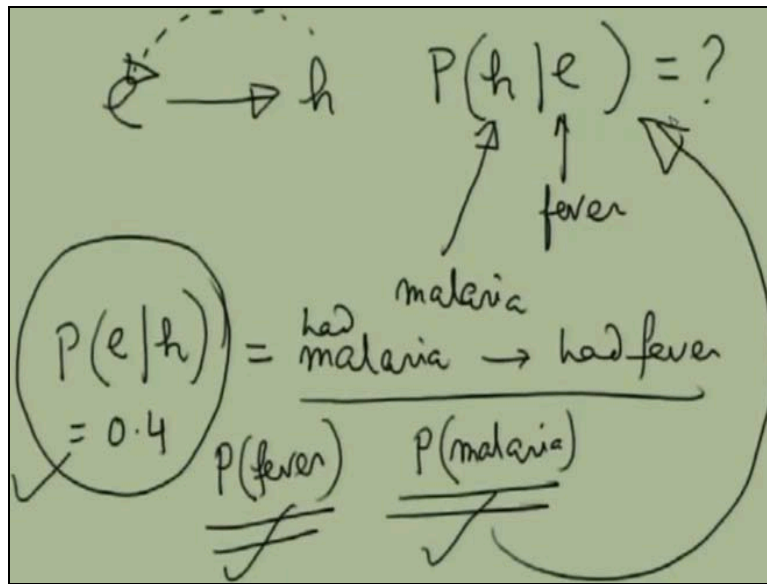 e → h P(h|e) = ?
fever
malaria
P(e|h) = had malaria → had fever
= 0.4
P(fever) P(malaria)